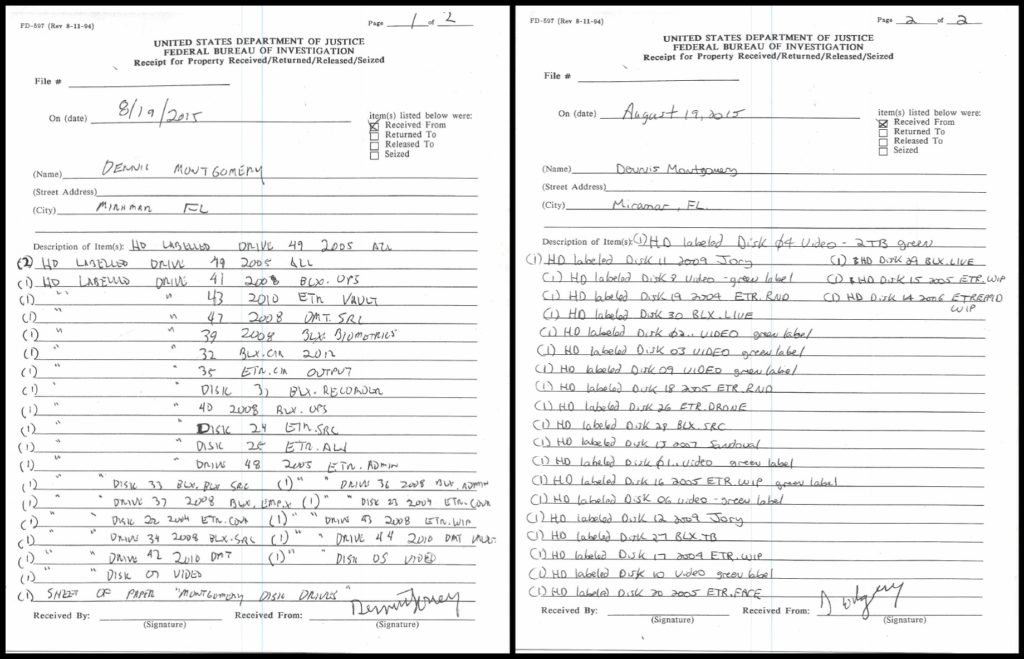 FD-597 (Rev 8-11-94)
Page 1 of 2
UNITED STATES DEPARTMENT OF JUSTICE
FEDERAL BUREAU OF INVESTIGATION
Receipt for Property Received/Returned/Released/Seized
File #
On (date) 8/19/2015
item(s) listed below were:
Received From
Returned To
Released To
Seized
(Name) DENNIS MONTGOMERY
(Street Address)
(City) MIRAMAR FL
Description of Item(s): HD LABELLED DRIVE 49 2005 ALL
(2) HD LABELLED DRIVE 49 2005 ALL
(1) HD LABELLED DRIVE 41 2008 BLX.OPS
(1) " " " 43 2010 ETR VAULT
(1) " " 47 2008 DMT.SRC
(1) " " 39 2008 BLX BIOMETRICS
(1) " " 32 BLX.CIA 2012
(1) " " 35 ETR.CIA OUTPUT
(1) " " DISK 31 BLX.RECORDER
(1) " " 40 2008 BLX.OPS
(1) " " DISK 24 ETR.SRC
(1) " " DISK 25 ETR.ALL
(1) " " DRIVE 48 2005 ETR.ADMIN
(1) " " DISK 33 BLX.BLX SRC (1) " " DRIVE 36 2008 BLX.ADMIN
(1) " " DRIVE 37 2008 BLX, (1) " " DISK 23 2004 ETR.COVR
(1) " " DISK 22 2004 ETR.COVR (1) " " DRIVE 43 2008 ETR.WIP
(1) " " DRIVE 34 2008 BLX.SRC (1) " " DRIVE 44 2010 DMT VAULT
(1) " " DRIVE 42 2010 DMT (1) " " DISK 05 VIDEO
(1) " " DISK 07 VIDEO
(1) SHEET OF PAPER "MONTGOMERY DISK DRIVES"
Received By: Received From:
(Signature) (Signature)
FD-597 (Rev 8-11-94)
Page 2 of 2
UNITED STATES DEPARTMENT OF JUSTICE
FEDERAL BUREAU OF INVESTIGATION
Receipt for Property Received/Returned/Released/Seized
File #
On (date) August 19, 2015
item(s) listed below were:
Received From
Returned To
Released To
Seized
(Name) Dennis Montgomery
(Street Address)
(City) Miramar, FL.
Description of Item(s): (1) HD labeled Disk 04 Video - 2TB green
(1) HD labeled Disk 11 2009 Jory (1) HD Disk 29 BLX.LIVE
(1) HD labeled Disk 8 Video - green label (1) HD Disk 15 2005 ETR.WIP
(1) HD labeled Disk 19 2004 ETR.RND (1) HD Disk 14 2006 WIP
(1) HD labeled Disk 30 BLX.LIVE
(1) HD labeled Disk 02.. VIDEO green label
(1) HD labeled Disk 03 VIDEO green label
(1) HD labeled Disk 09 VIDEO green label
(1) HD labeled Disk 18 2005 ETR.RND
(1) HD labeled Disk 26 ETR.DRONE
(1) HD labeled Disk 28 BLX.SRC
(1) HD labeled Disk 13 2007 Sandoval
(1) HD labeled Disk 01.. Video green label
(1) HD labeled Disk 16 2005 ETR.WIP green label
(1) HD labeled Disk 06 video - green label
(1) HD labeled Disk 12 2009 Jory
(1) HD labeled Disk 27 BLX.TB
(1) HD labeled Disk 17 2004 ETR.WIP
(1) HD labeled Disk 10 Video green label
(1) HD labeled Disk 20 2005 ETR.FACE
Received By: Received From:
(Signature) (Signature)